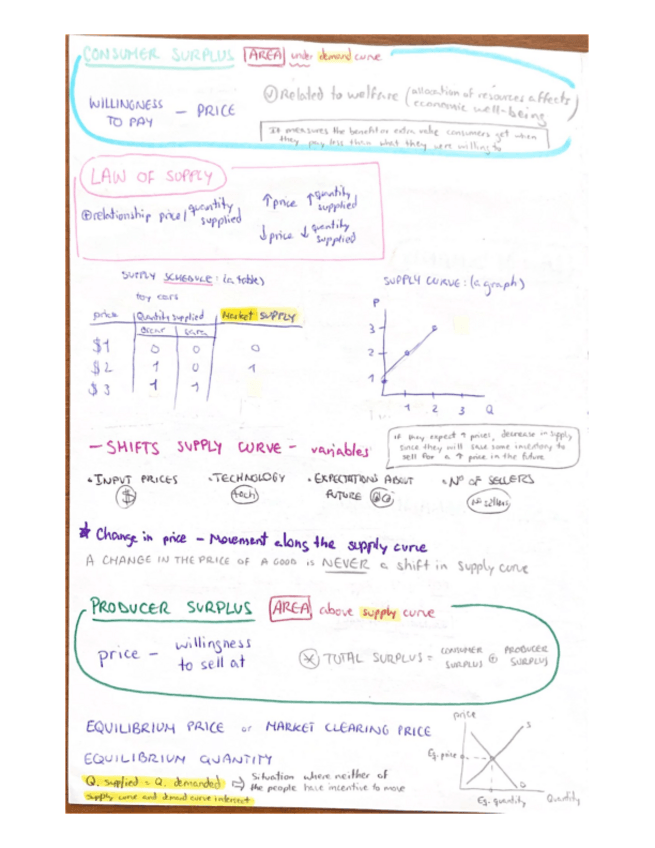 CONSUMER SURPLUS AREA under demand curve
WILLINGNESS TO PAY — PRICE
Related to welfare (allocation of resources affects economic well-being)
It measures the benefit or extra value consumers get when
they pay less than what they were willing to
LAW OF SUPPLY
⊕ relationship price / quantity supplied
↑ price ↑ quantity supplied
↓ price ↓ quantity supplied
SUPPLY SCHEDULE: (a table)
toy cars
price Quantity supplied Market SUPPLY
Oscar
$1 0 0 0
$2 1 0 1
$3 1 1
SUPPLY CURVE: (a graph)
P
3
2
1
1 2 3 Q
— SHIFTS SUPPLY CURVE — variables
if they expect ↑ prices, decrease in supply
since they will save some inventory to
sell for a ↑ price in the future
• INPUT PRICES • TECHNOLOGY • EXPECTATIONS ABOUT FUTURE • Nº OF SELLERS
$ tech
★ Change in price — Movement along the supply curve
A CHANGE IN THE PRICE OF A GOOD IS NEVER a shift in supply curve
PRODUCER SURPLUS AREA above supply curve
price — willingness to sell at
TOTAL SURPLUS = CONSUMER SURPLUS ⊕ PRODUCER SURPLUS
EQUILIBRIUM PRICE or MARKET CLEARING PRICE
EQUILIBRIUM QUANTITY
Q. supplied = Q. demanded ⇒ Situation where neither of
the people have incentive to move
supply curve and demand curve intersect
price
S
Eq. price
D
Eq. quantity Quantity